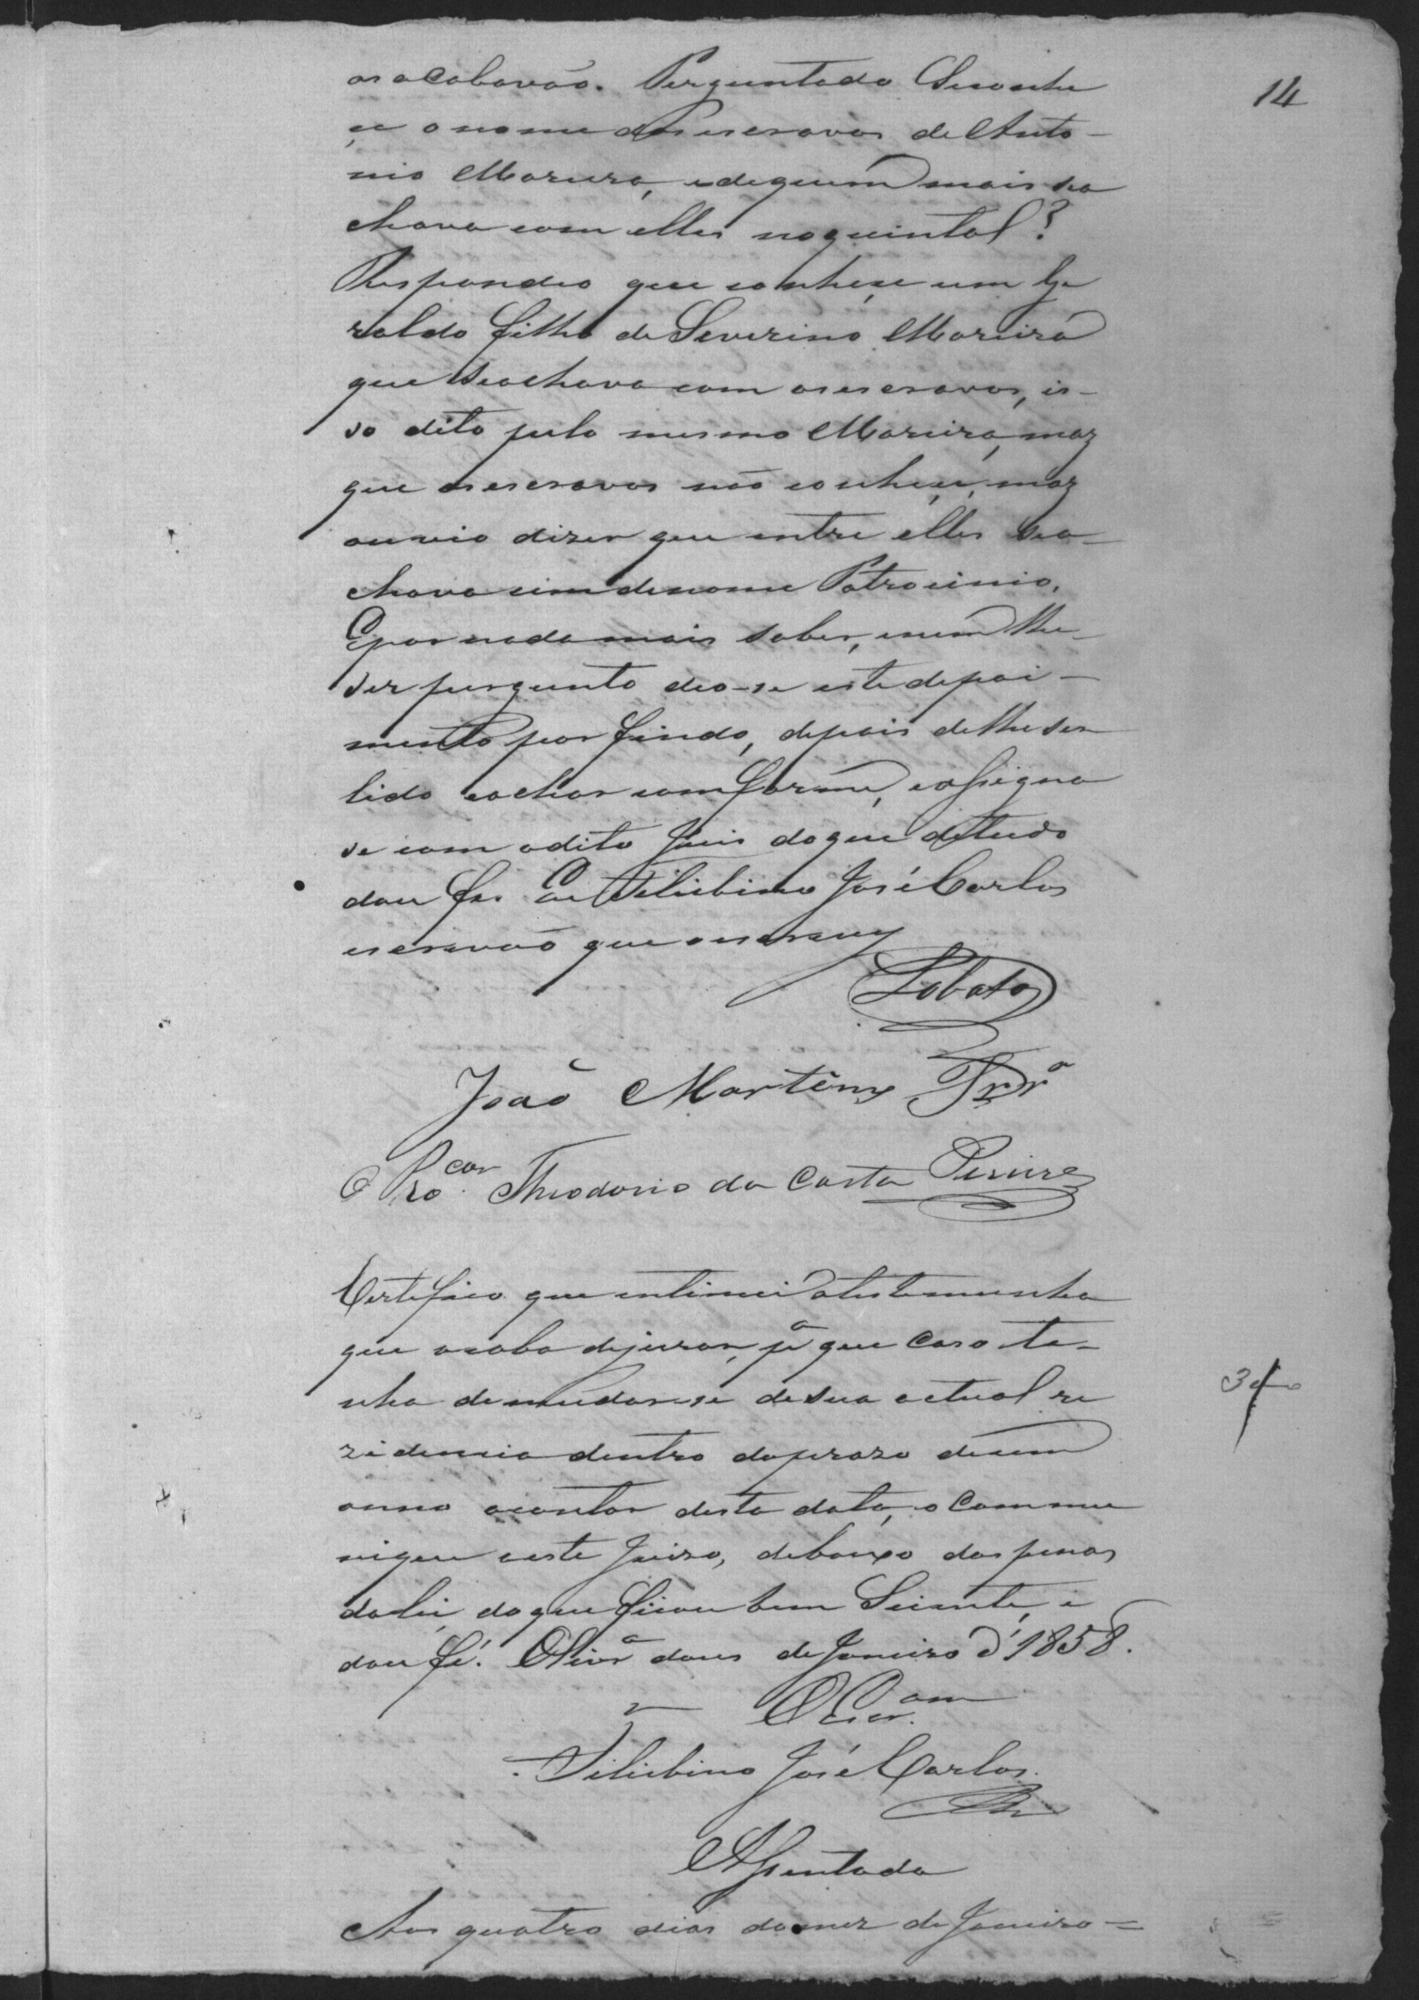 14
as acabavão. Perguntado Se conhe
ce o nome dos escravos de Anto-
nio Moreira, e de quem mais se a
chava com elles no quintal?
Respondeo que conheçe um Ge
raldo filho de Severino Moreira
que se achava com os escravos, is-
so dito pelo mesmo Moreira, maz
que os escravos não conheçe, maz
ouvio dizer que entre elles se a-
chava um de nome Patrocinio.
E por nada mais saber, e nem lhe
ser pergunto deo-se este depoi-
mento por findo, depois de lhe ser
lido e achar comforme, e assigna
se com o dito Juis do que de tudo
dou fe. Eu Filisbino José Carlos
escravão que o escrevy
Lobato
João Martins Frr.ª
O Pro.cor Theodorio da Costa Pereira
Certifico que intimei a testemunha
que acaba de jurar, pª que caso te-
nha de mudar-se de sua actual re
zidencia dentro do praso de um
anno a contar desta data, o Commu
nique a este Juizo, debaixo das penas
da lei do que ficou bem Sciente, e
dou fé. Olivrª dous de Janeiro d'1858.
O Escr.am
Filisbino José Carlos.
Assentada
Aos quatro dias do mez de Janeiro=